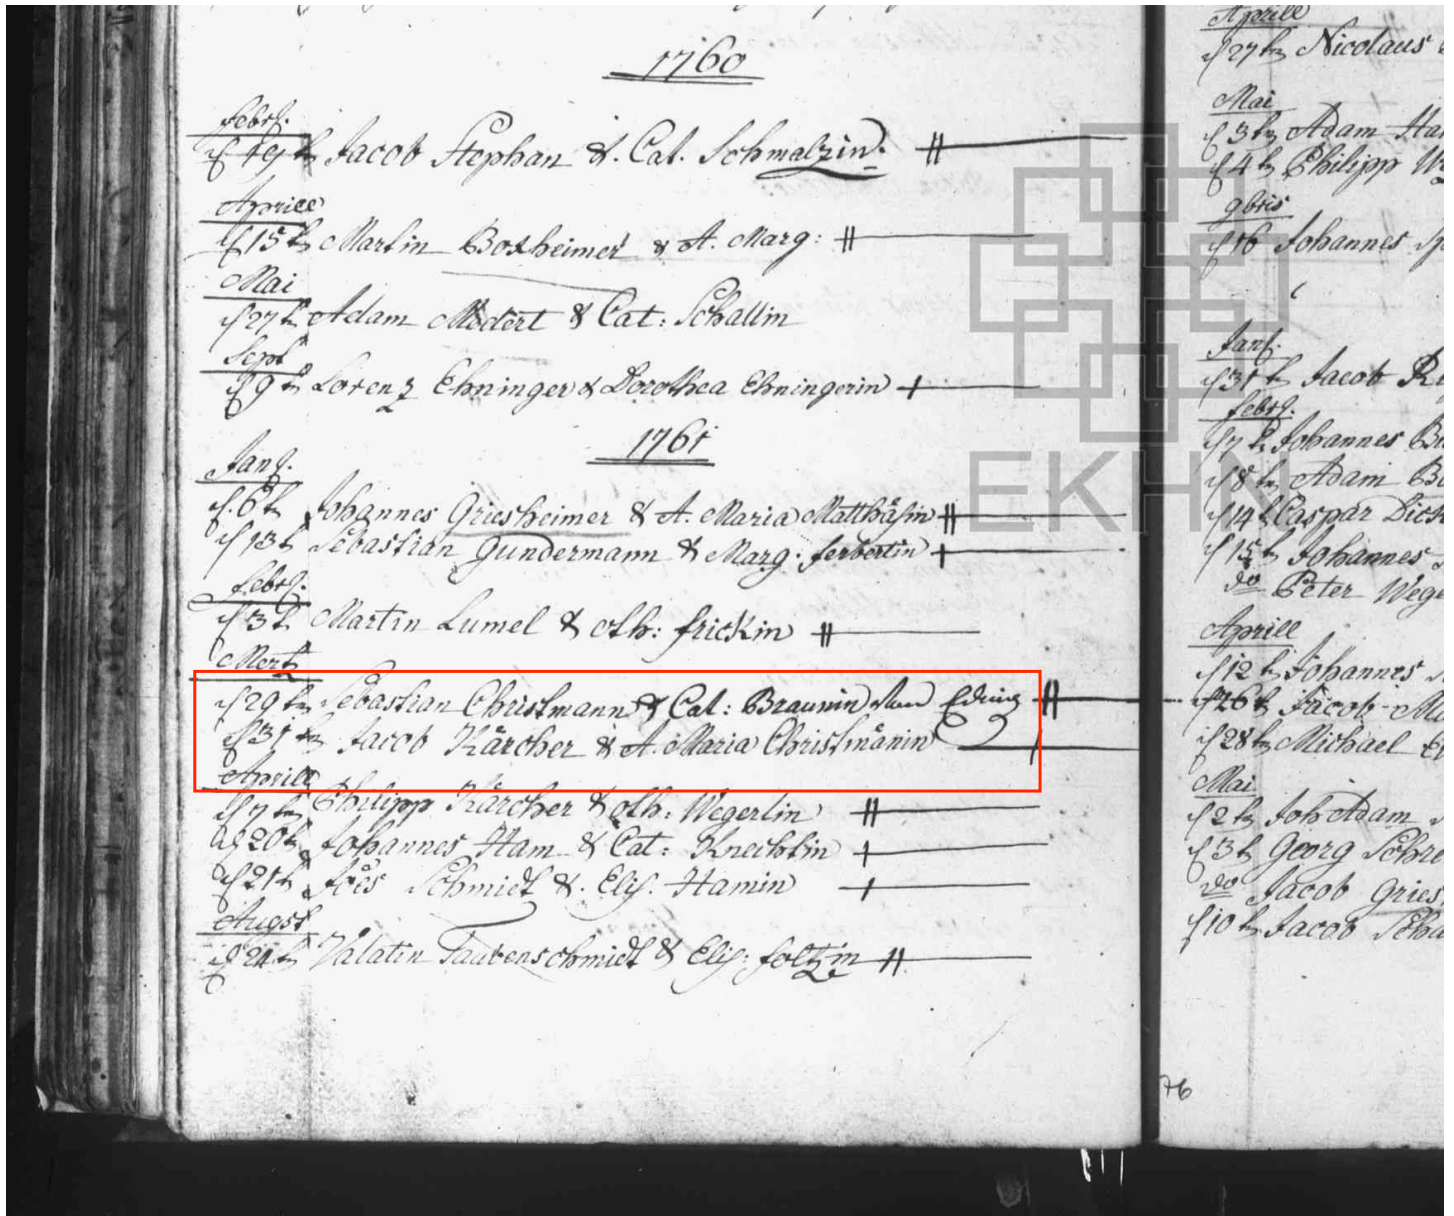 1760
Febr.
d 19ten Jacob Stephan & Cat. Schmalzin.
Aprill
d 15ten Martin Boxheimer & A. Marg:
Mai
d 27ten Adam Modert & Cat: Schallin
Sept
d 9ten Lorenz Ehninger & Dorothea Ehningerin
1761
Jan.
d. 6ten Johannes Griesheimer & A. Maria Matthäsin
d 13ten Sebastian Gundermann & Marg. Ferbertin
Febr.
d 3ten Martin Lumel & Frickin
Mertz
d 29ten Sebastian Christmann & Cat: Braunin
d 31ten Jacob Kärcher & A. Maria Christmänin
Aprill
d 7ten Philipp Kärcher & Wegerlin
d 20ten Johannes Ham & Cat: Knechtin
d 21ten Joes Schmidt & Elis. Hamin
Augst
d 24ten Valatin Taubenschmidt & Elis: Foltzin
Aprill
d 27ten Nicolaus
Mai
d 3ten Adam Ha
d 4ten Philipp
9bris
d 16 Johannes
Jan.
d 31ten Jacob
Febr.
d 7ten Johannes
d 8ten Adam
d 14ten Caspar Dick
d 15ten Johannes
do Peter Wege
Aprill
d 12ten Johannes
d 26ten Jacob
d 28ten Michael
Mai
d 2ten Joh Adam
d 3ten Georg Schre
do Jacob Gries
d 10ten Jacob Scha
76
EKHN